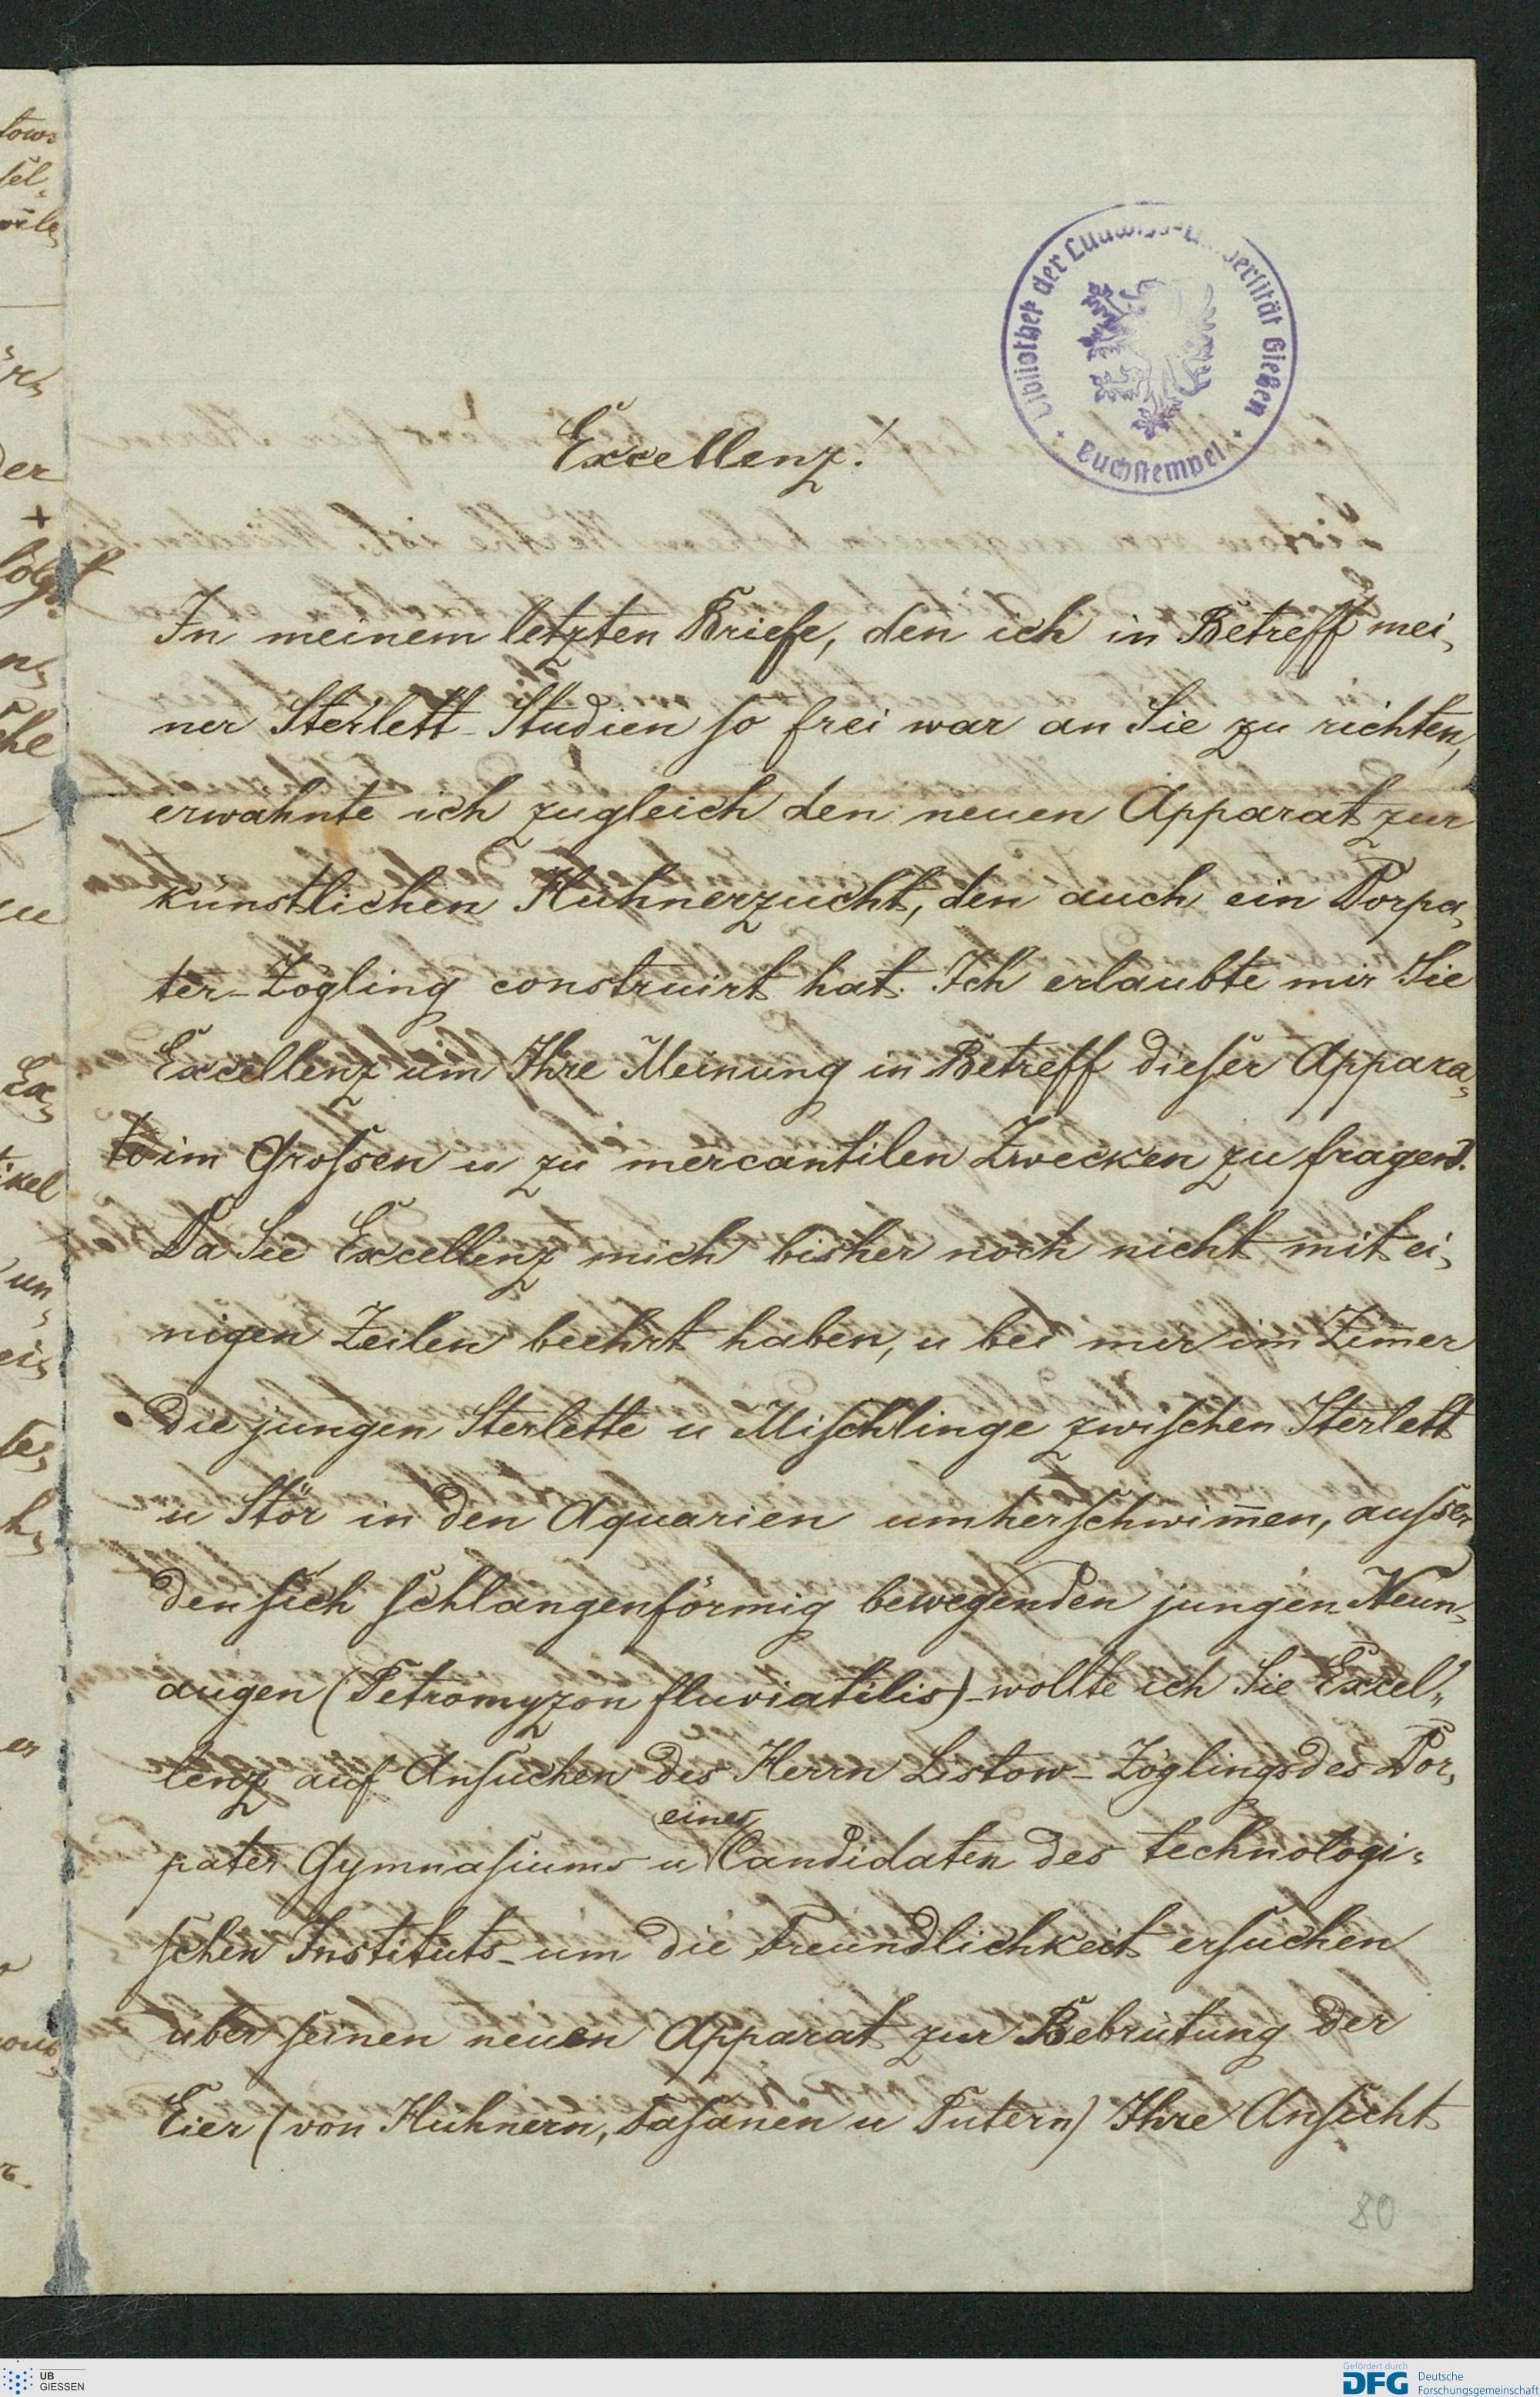 Excellenz!
Bibliothek der Ludwigs-Universität Gießen
Buchstempel
In meinem letzten Briefe, den ich in Betreff mei„
ner Sterlett-Studien so frei war an Sie zu richten,
erwähnte ich zugleich den neuen Apparat zur
künstlichen Hühnerzucht, den auch ein Dorpa„
ter-Zögling construirt hat. Ich erlaubte mir Sie
Excellenz um Ihre Meinung in Betreff dieser Appara„
te im Grossen u zu mercantilen Zwecken zu fragen.
Da Sie Excellenz mich bisher noch nicht mit ei„
nigen Zeilen beehrt haben, u bei mir im Zim̅er
die jungen Sterlette u Mischlinge zwischen Sterlett
u Stör in den Aquarien umherschwim̅en, ausser
den sich schlangenförmig bewegenden jungen Neun„
augen (Petromyzon fluviatilis) - wollte ich Sie Excel„
lenz auf Ansuchen des Herrn Listow - Zöglings des Dor„
eines
pater Gymnasiums u Candidaten des technologi„
schen Instituts - um die Freundlichkeit ersuchen
über seinen neuen Apparat zur Bebrütung der
Eier (von Hühnern, Fasanen u Putern) Ihre Ansicht
80
tows
sel„
der
+
folgt
che
zu
Ex„
tikel
un„
ei„
er
UB
GIESSEN
Gefördert durch
DFG Deutsche
Forschungsgemeinschaft